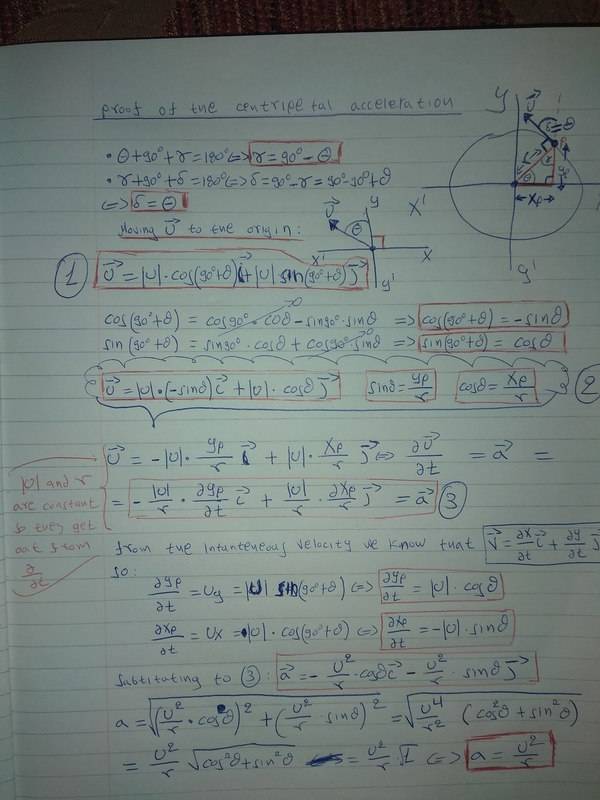 proof of the centripetal acceleration
• θ+90°+γ=180° <=> γ=90°-θ
• γ+90°+δ=180° <=> δ=90°-γ=90°-90°+θ
<=> δ=θ
Moving U⃗ to the origin:
① U⃗=|U|·cos(90°+θ)i⃗+|U| sin(90°+θ)j⃗
cos(90°+θ) = cos90°·cosθ - sin90°·sinθ => cos(90°+θ)=-sinθ
sin(90°+θ) = sin90°·cosθ + cos90°·sinθ => sin(90°+θ) = cosθ
U⃗=|U|·(-sinθ)i⃗+|U|·cosθj⃗ sinθ=yp/r cosθ=xp/r ②
U⃗ = -|U|·yp/r i⃗ + |U|·xp/r j⃗ <=> ∂U⃗/∂t = a⃗ =
= -|U|/r·∂yp/∂t i⃗ + |U|/r·∂xp/∂t j⃗ = a⃗ ③
|U| and r
are constant
so they get
out from
∂/∂t
from the intanteneous velocity we know that V⃗=∂x/∂t i⃗+∂y/∂t j⃗
so:
∂yp/∂t = Uy = |U| sin(90°+θ) <=> ∂yp/∂t = |U|·cosθ
∂xp/∂t = Ux = |U|·cos(90°+θ) <=> ∂xp/∂t = -|U|·sinθ
Subtitating to ③: a⃗ = -U²/r·cosθi⃗ - U²/r·sinθj⃗
a = √((U²/r·cosθ)²+(U²/r sinθ)²) = √(U⁴/r² (cos²θ+sin²θ))
= U²/r √(cos²θ+sin²θ) = U²/r √1 <=> a = U²/r
y
U⃗
δ=θ
r
θ
γ
yp
xp
x'
y'
y
U⃗
θ
x'
x
y'